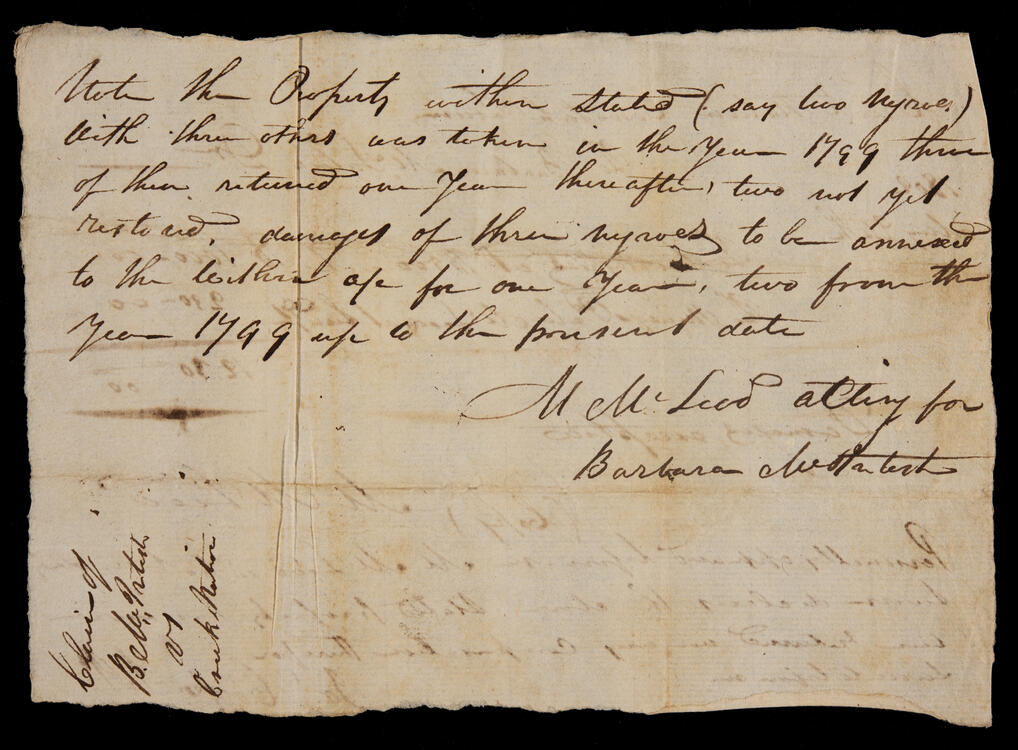 Note the Property within stated (say two Negroes)
With three others was taken in the Year 1799 three
of them returned one Year thereafter, two not yet
restored, damages of three negroes to be annexed
to the Within a/c for one Year, two from the
Year 1799 up to the present date
M McLeod acting for
Barbara McIntosh
Claim of
B. McIntosh
vs
Creek Nation